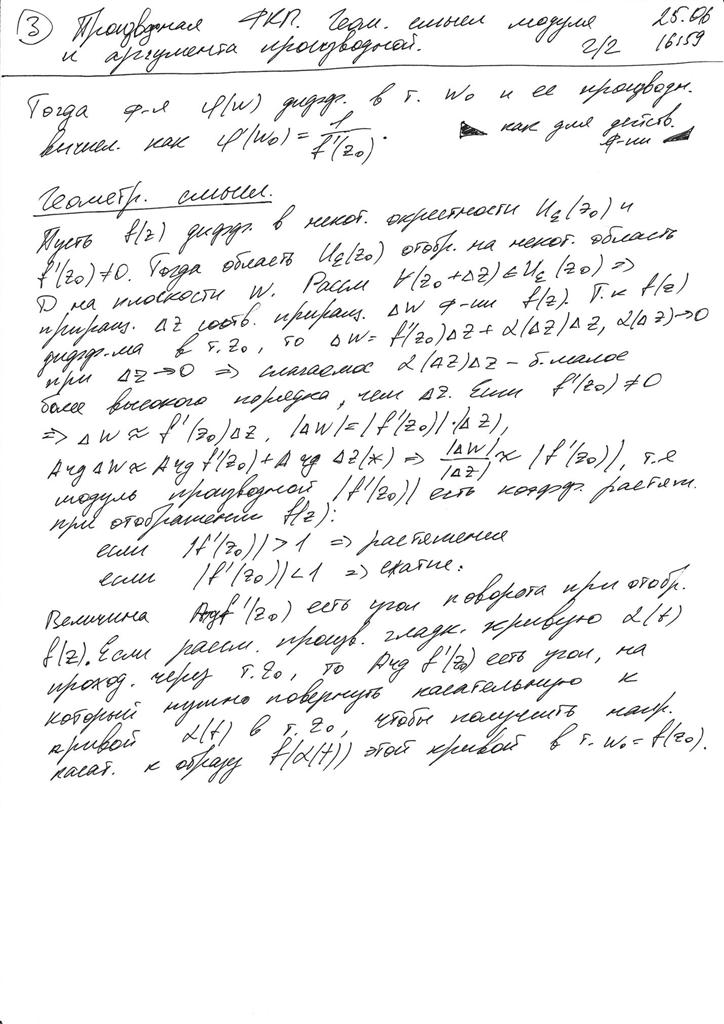 ③ Производная ФКП. Геом. смысл модуля 25.06
и аргумента производной. 2/2 16:59
Тогда ф-я φ(w) дифф. в т. w₀ и ее производн.
вычисл. как φ'(w₀) = 1/f'(z₀). ◣ как для действ. ф-ии ◢
Геометр. смысл.
Пусть f(z) дифф. в некот. окрестности U_ε(z₀) и
f'(z₀) ≠ 0. Тогда область U_ε(z₀) отобр. на некот. область
D на плоскости W. Рассм ∀(z₀+Δz) ∈ U_ε(z₀) ⇒
приращ. Δz соотв. приращ. Δw ф-ии f(z). Т.к f(z)
дифф-ма в т. z₀, то Δw = f'(z₀)Δz + α(Δz)Δz, α(Δz)→0
при Δz→0 ⇒ слагаемое α(Δz)Δz – б.малое
более высокого порядка, чем Δz. Если f'(z₀) ≠ 0
⇒ Δw ≈ f'(z₀)Δz, |Δw| = |f'(z₀)|·|Δz|,
Arg Δw ≈ Arg f'(z₀) + Arg Δz (*) ⇒ |Δw|/|Δz| ≈ |f'(z₀)|, т.е
модуль производной |f'(z₀)| есть коэфф. растяж.
при отображении f(z):
если |f'(z₀)| > 1 ⇒ растяжение
если |f'(z₀)| < 1 ⇒ сжатие.
Величина Arg f'(z₀) есть угол поворота при отобр.
f(z). Если рассм. произв. гладк. кривую α(t)
проход. через т. z₀, то Arg f'(z₀) есть угол, на
который нужно повернуть касательную к
кривой α(t) в т. z₀, чтобы получить напр.
касат. к образу f(α(t)) этой кривой в т. w₀ = f(z₀).